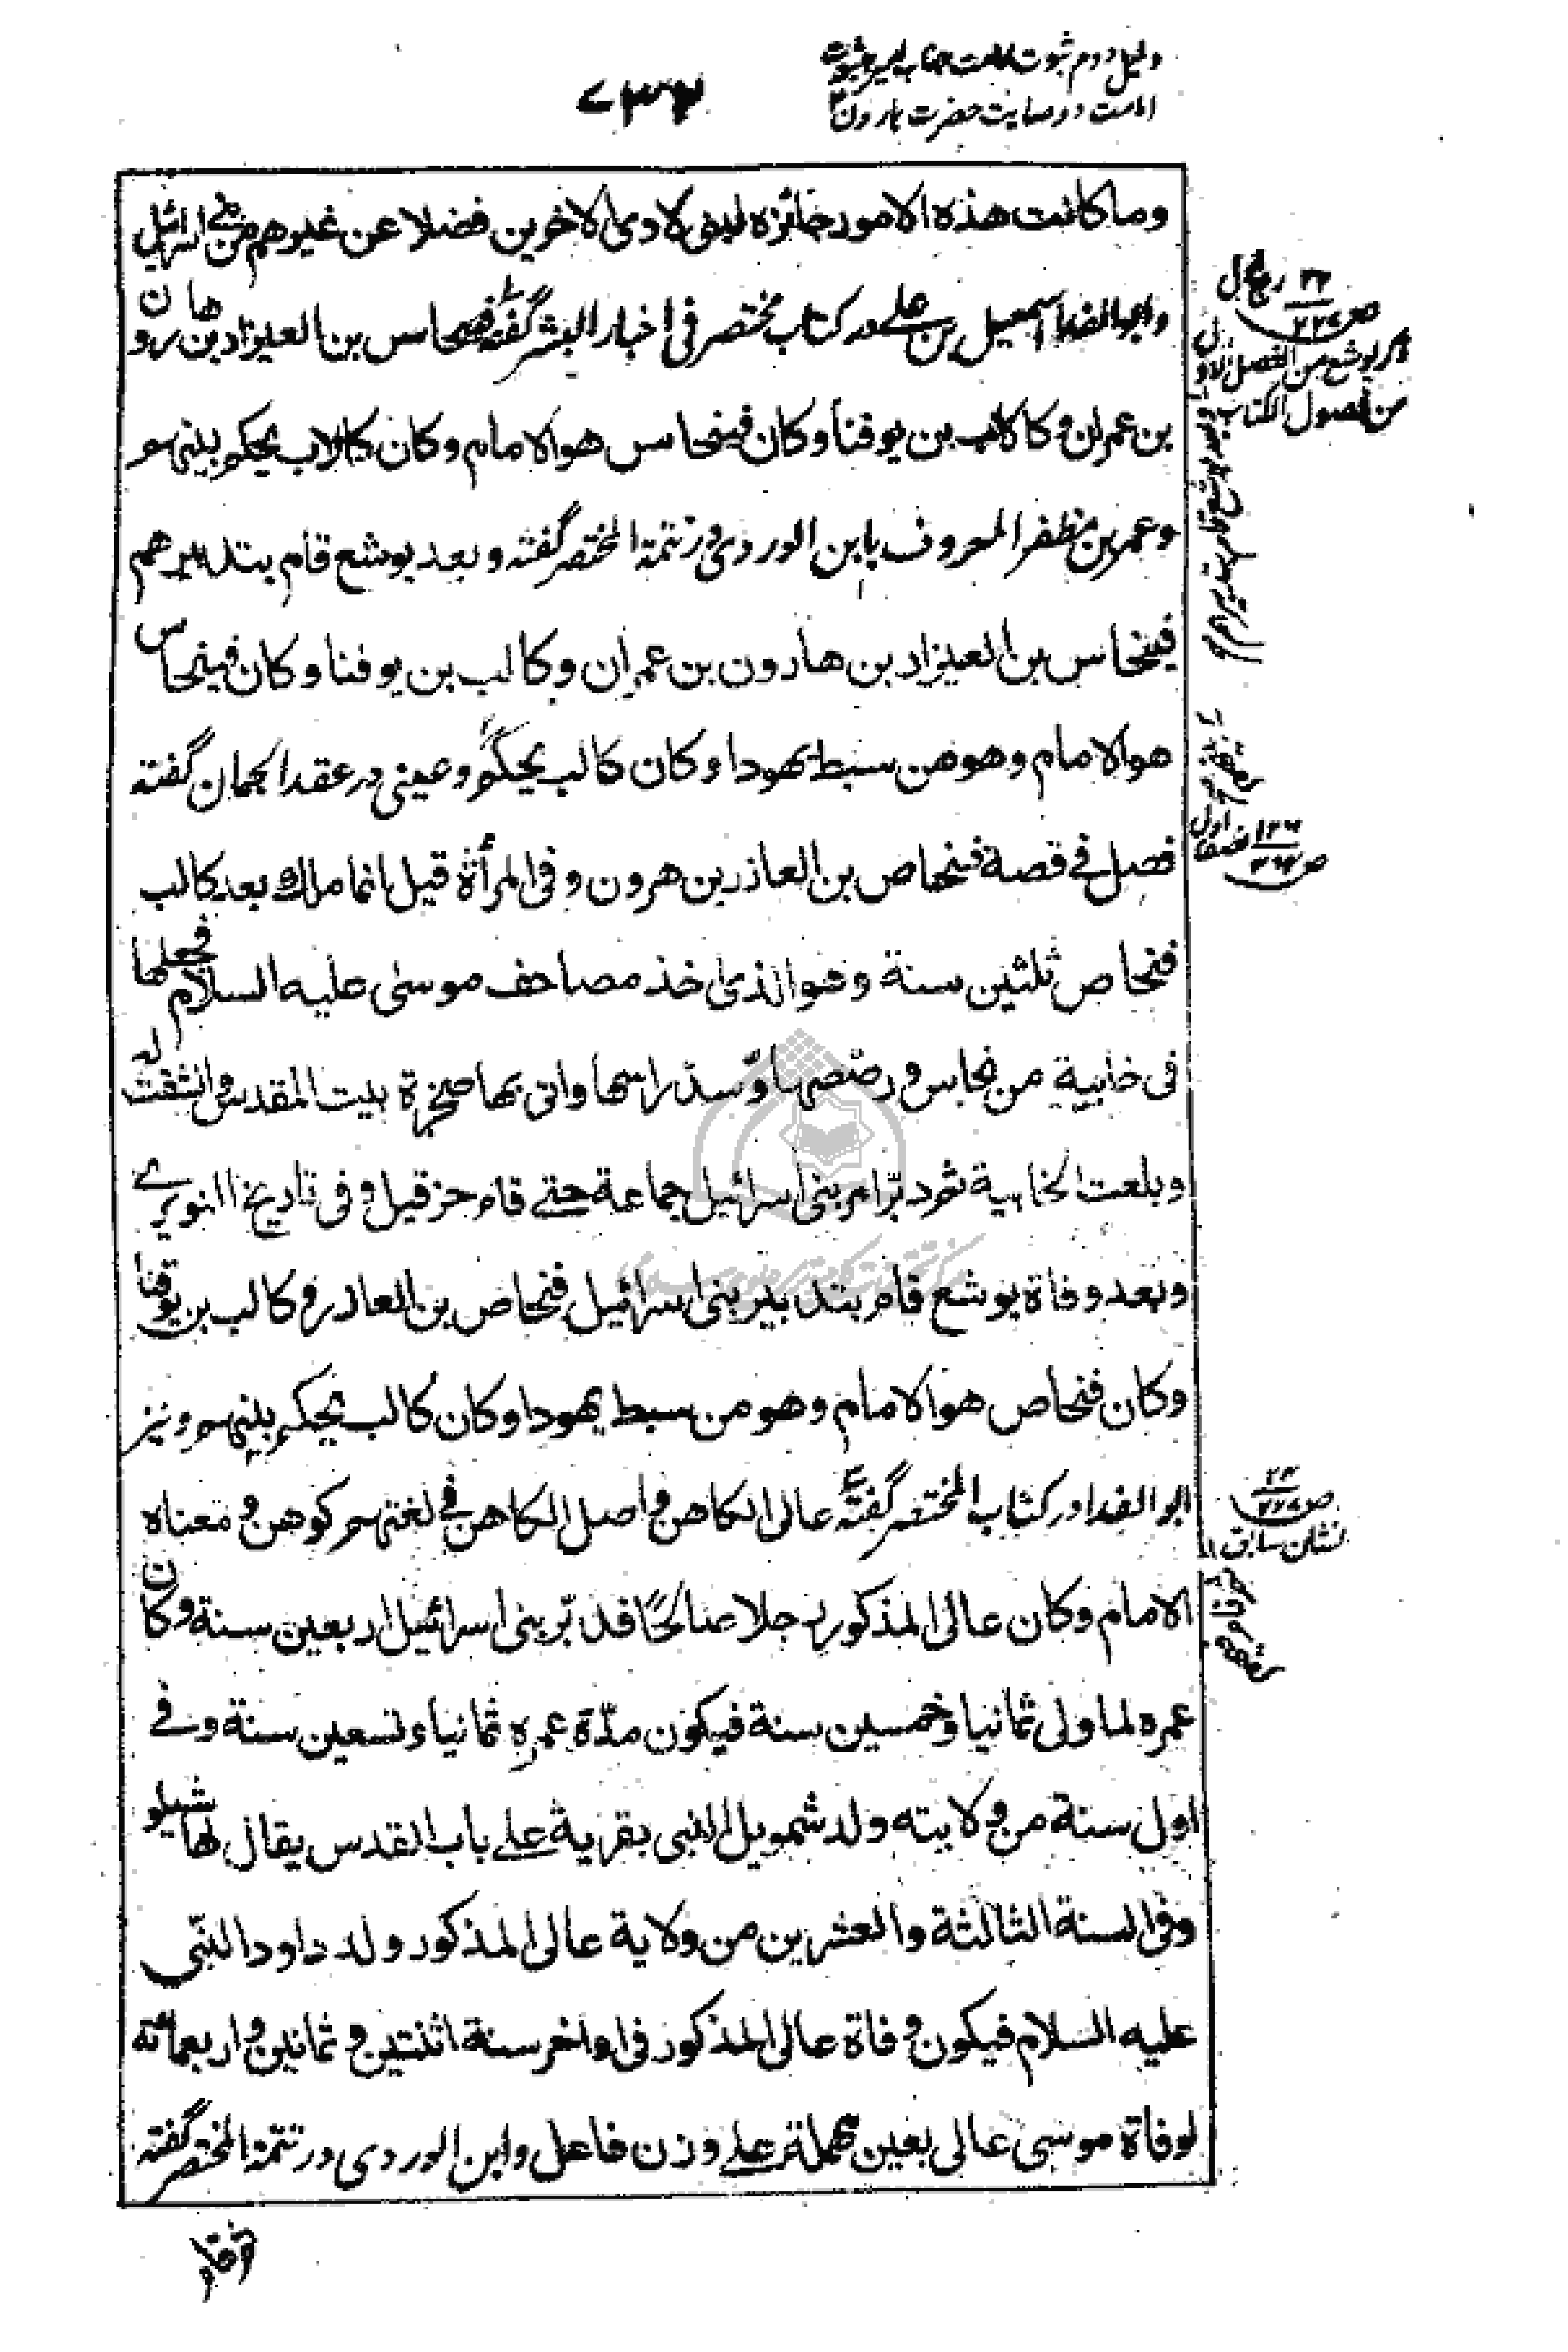 دلیل دوم ثبوت امامت جناب امیر بثبوت
امامت و وصایت حضرت هارون
۷۳۴
وما کانت هذه الامور جائزة لبنی لاوی الاخرین فضلا عن غیرهم من بنی اسرائیل
وابو الفدا اسمعیل بن علی در کتاب مختصر فی اخبار البشر گفته فینحاس بن العیزار بن هارون
بن عمران وکالاب بن یوفنا وکان فینحاس هو الامام وکان کالاب یحکم بینهم
وعمر بن مظفر المعروف بابن الوردی در تتمة المختصر گفته وبعد یوشع قام بتدبیرهم
فینحاس بن العیزار بن هارون بن عمران وکالب بن یوفنا وکان فینحاس
هو الامام وهو من سبط یهودا وکان کالب یحکم وعینی در عقد الجمان گفته
فصل فی قصة فنحاص بن العاذر بن هرون وفی المرأة قیل انما ملک بعد کالب
فنحاص ثلثین سنة وهو الذی اخذ مصاحف موسی علیه السلام فجعلها
فی خابیة من نحاس ورصّصها وسدّ راسها واتی بها صخرة بیت المقدس فانشقت له
وبلعت الخابیة ثم دبّر امر بنی اسرائیل جماعة حتی قام حزقیل وفی تاریخ النویری
وبعد وفاة یوشع قام بتدبیر بنی اسرائیل فنحاص بن العاذر وکالب بن یوفنا
وکان فنحاص هو الامام وهو من سبط یهودا وکان کالب یحکم بینهم ونیز
ابو الفدا در کتاب المختصر گفته عالی الکاهن واصل الکاهن فی لغتهم کوهن ومعناه
الامام وکان عالی المذکور رجلا صالحًا فدبّر بنی اسرائیل اربعین سنة وکان
عمره لما ولی ثمانیا وخمسین سنة فیکون مدّة عمره ثمانیا وتسعین سنة وفی
اول سنة من ولایته ولد شمویل النبی بقریة علی باب القدس یقال لها شیلو
وفی السنة الثالثة والعشرین من ولایة عالی المذکور ولد داود النبی
علیه السلام فیکون وفاة عالی المذکور فی اواخر سنة اثنتین وثمانین واربعمائه
لوفاة موسی عالی بعین مهملة علی وزن فاعل وابن الوردی در تتمة المختصر گفته
ذکر یوشع من الفصل الاول
من فصول الکتاب
وبعد یوشع قام بتدبیرهم
نشان سابق
ثم قام